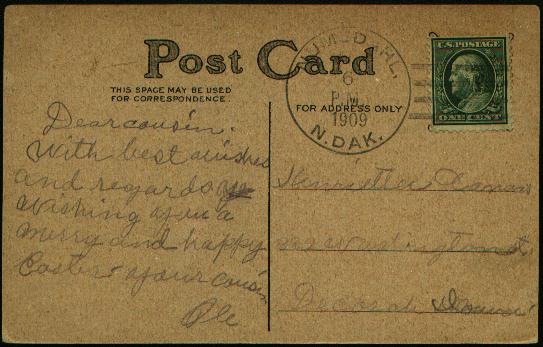 Post Card
THIS SPACE MAY BE USED
FOR CORRESPONDENCE.
FOR ADDRESS ONLY
6
P.M.
1909
N.DAK.
U.S.POSTAGE
ONE CENT
Dear cousin.
With best wishes
and regards
Wishing you a
merry and happy
Easter your cousin
Ole
Henrietta
Washington st.
Decorah Iowa